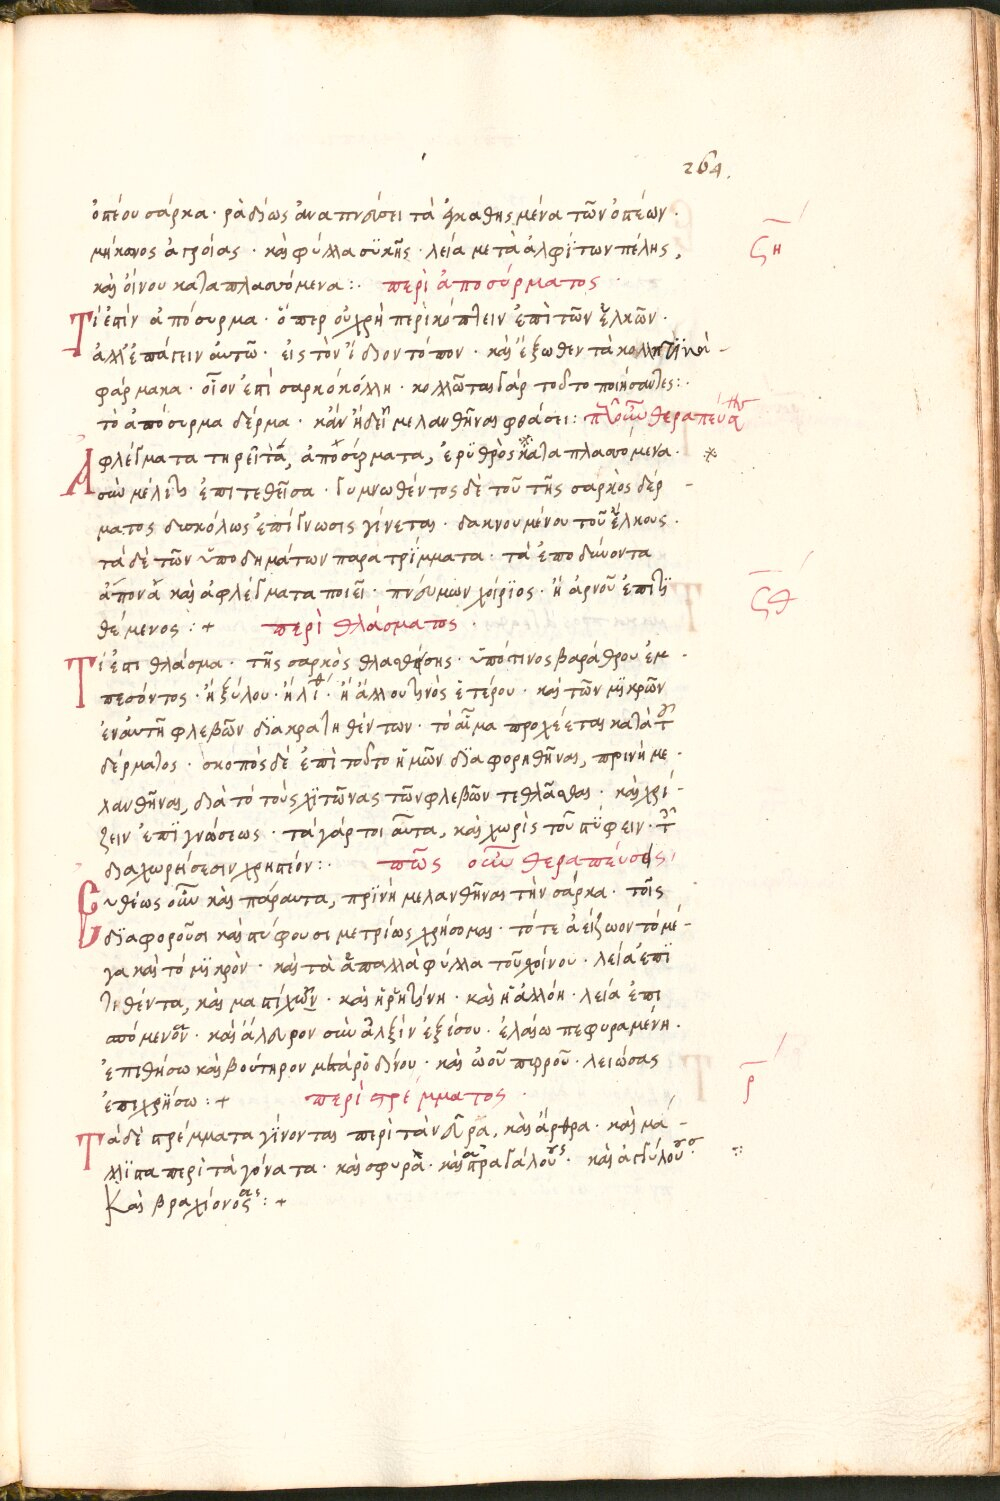 264.
ὀπέου σάρκα · ῥαδίως ἀναπνεύσει τὰ ἐγκαθήμενα τῶν ὀπέων ·
μήκωνος ἀγρίας · καὶ φύλλα συκῆς · λεία μετὰ ἀλφίτων πέλης, ϟη
καὶ οἴνου καταπλασσόμενα :· περὶ ἀποσύρματος
Τί ἐστιν ἀπόσυρμα · ὅπερ οὐ χρὴ περικόπτειν ἐπὶ τῶν ἑλκῶν ·
ἀλλ' ἐπάγειν αὐτῷ · εἰς τὸν ἴδιον τόπον · καὶ ἔξωθεν τὰ κολλητικὰ -
φάρμακα · οἷον ἐπὶ σαρκόκόλλη · κολλῶται γάρ τοῦτο ποιήσαντες :·
τὸ ἀπόσυρμα δέρμα · κἂν μελανθῆναι φθάσει : οὖν θεραπεύ
Ἀφλέγματα τηρεῖ τὰ, ἀποσύρματα, ἐρυθρὸς καταπλασσόμενα ·
σὺν μέλιτι ἐπιτεθεῖσα · γυμνωθέντος δὲ τοῦ τῆς σαρκὸς δέρ -
ματος δυσκόλως ἐπίγνωσις γίνεται · δακνουμένου τοῦ ἕλκους ·
τὰ δὲ τῶν ὑποδημάτων παρατρίμματα · τὰ ἐπο
ἄπονα καὶ ἀφλέγματα ποιεῖ · πνεύμων χοίριος · ἢ ἀρνοῦ ἐπιτι ϟθ
θέμενος : + περὶ θλάσματος ·
Τί ἐστι θλάσμα · τῆς σαρκὸς θλασθείσης · ὑπό τινος βαράθρου ἐκ -
πεσόντος · ἢ ξύλου · ἢ λίθ · ἢ ἄλλου τινὸς ἑτέρου · καὶ τῶν μικρῶν
ἐν αὐτῇ φλεβῶν διακρατηθέντων · τὸ αἷμα προχέεται κατὰ τ
δέρματος · σκοπὸς δὲ ἐπὶ τοῦτο ἡμῶν διαφορηθῆναι, πρινὴ με -
λανθῆναι, διὰ τό τοὺς χιτῶνας τῶν φλεβῶν τεθλᾶσθαι · καὶ χρί -
ζειν ἐπιγνώσεως · τὰ γάρ τοι αὐτα, καὶ χωρὶς τοῦ στύφειν · τ
διαχωρήσεσιν χρηστέον :· πῶς οὖν θεραπεύσεις
Εὐθέως οὖν καὶ πάραυτα, πρινὴ μελανθῆναι τὴν σάρκα · τοῖς
διαφοροῦσι καὶ στύφουσι μετρίως χρήσομαι · τότε ἀείζωον τὸ μέ -
γα καὶ τό μικρὸν · καὶ τὰ ἁπαλλὰ φύλλα τοῦ σχοίνου · λεία ἐπι
τιθέντα, καὶ μαστίχην · καὶ ῥητίνη · καὶ ἡ ἀλλόη · λεία ἐπι
μενον · καὶ ἄλευρον σὺν ἀλξὶν ἐξίσου · ἐλαίω πεφυραμένη ·
ἐπιθήσω καὶ βούτηρον μετὰ ῥοδίνου · καὶ ὠοῦ πυρροῦ · λειώσας ρ
ἐπιχρήσω : + περὶ στρέμματος ·
Τὰ δὲ στρέμματα γίνονται περὶ τὰ νεῦρα, καὶ ἄρθρα · καὶ μά -
λλιστα περὶ τὰ γόνατα · καὶ σφυρὰ · καὶ ἀστραγάλους · καὶ δακτύλους
Καὶ βραχίονας : +